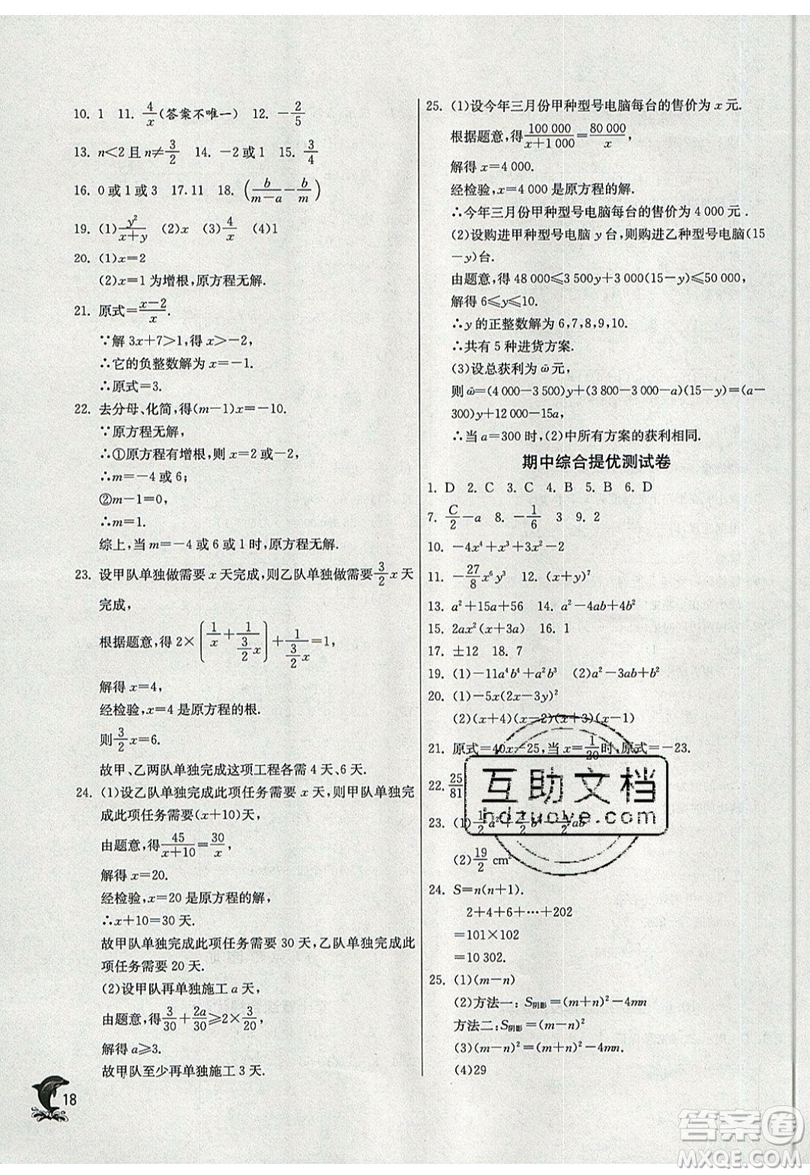 10. 1  11. 4/x(答案不唯一)  12. -2/5
13. n<2 且 n≠3/2  14. -2  15. 3/4
16. 0 或 1 或 3  17.11  18. (b/(m-a)-b/m)
19. (1)y²/(x+y)  (2)x  (3)4/x  (4)1
20. (1)x=2
(2)x=1为增根,原方程无解.
21. 原式=(x-2)/x.
∵解 3x+7>1,得 x>-2,
∴它的负整数解为-1.
∴原式=3.
22. 去分母、化简,得(m-1)x=-10.
∵原方程无解,
∴①原方程有增根,则 x=-2 或 x=2.
∴m=-4 或 6;
②m-1=0,
∴m=1.
综上,当 m=-4 或 6 或 1 时,原方程无解.
23. 设甲队单独做需要 x 天完成,则乙队单独做需要 3/2 x 天
完成,
根据题意,得 2×(1/x+1/(3/2 x))+1/(3/2 x)=1,
解得 x=4,
经检验,x=4 是原方程的根.
则 3/2 x=6.
故甲、乙两队单独完成这项工程各需 4 天、6 天.
24. (1)设乙队单独完成此项任务需要 x 天,则甲队单独完
成此项任务需要(x+10)天,
由题意,得 45/(x+10)=30/x,
解得 x=20.
经检验,x=20 是原方程的解,
∴x+10=30 天.
故甲队单独完成此项任务需要 30 天,乙队单独完成此
项任务需要 20 天.
(2)设甲队再单独施工 a 天,
由题意,得 3/30+2a/30≥2×3/20,
解得 a≥3.
故甲队至少再单独施工 3 天.
18
25. (1)设今年三月份甲种型号电脑每台的售价为 x 元.
根据题意,得 100 000/(x+1 000)=80 000/x,
解得 x=4 000.
经检验,x=4 000 是原方程的解.
∴今年三月份甲种型号电脑每台的售价为 4 000 元.
(2)设购进甲种型号电脑 y 台,则购进乙种型号电脑(15
-y)台.
由题意,得 48 000≤3 500y+3 000(15-y)≤50 000,
解得 6≤y≤10.
∴y 的正整数解为 6,7,8,9,10.
∴共有 5 种进货方案.
(3)设总获利为 ω̄ 元,
则 ω̄=(4 000-3 500)y+(3 800-3 000-a)(15-y)=(a-
300)y+12 000-15a,
∴当 a=300 时,(2)中所有方案的获利相同.
期中综合提优测试卷
1. D  2. C  3. C  4. B  5. B  6. D
7. C/2-a  8. -1/6  3  9. 2
10. -4x⁴+4x³-x²
11. -27/8 x⁶y³  12. (x+y)⁷
13. a²+15a+56  14. a²-4ab+4b²
15. 2ax²(x+3a)  16. 1
17. ±12  18. 7
19. (1)-11a⁴b⁴+a²b³  (2)a²-3ab+b²
20. (1)-5x(x-3y)²
(2)(x+4)(x-2)(x+3)(x-1)
21. 原式=40x-25,当 x=1/20时,原式=-23.
22. 25/81
23. (1)1/2 a²+1/2 b²-1/2 ab
(2)19/2 cm²
24. S=n(n+1).
2+4+6+…+202
=101×102
=10 302.
25. (1)(m-n)
(2)方法一:S阴影=(m+n)²-4mn
方法二:S阴影=(m-n)²
(3)(m-n)²=(m+n)²-4mn
(4)29
互助文档
hdzuowe.com
答案圈
MXQE.COM